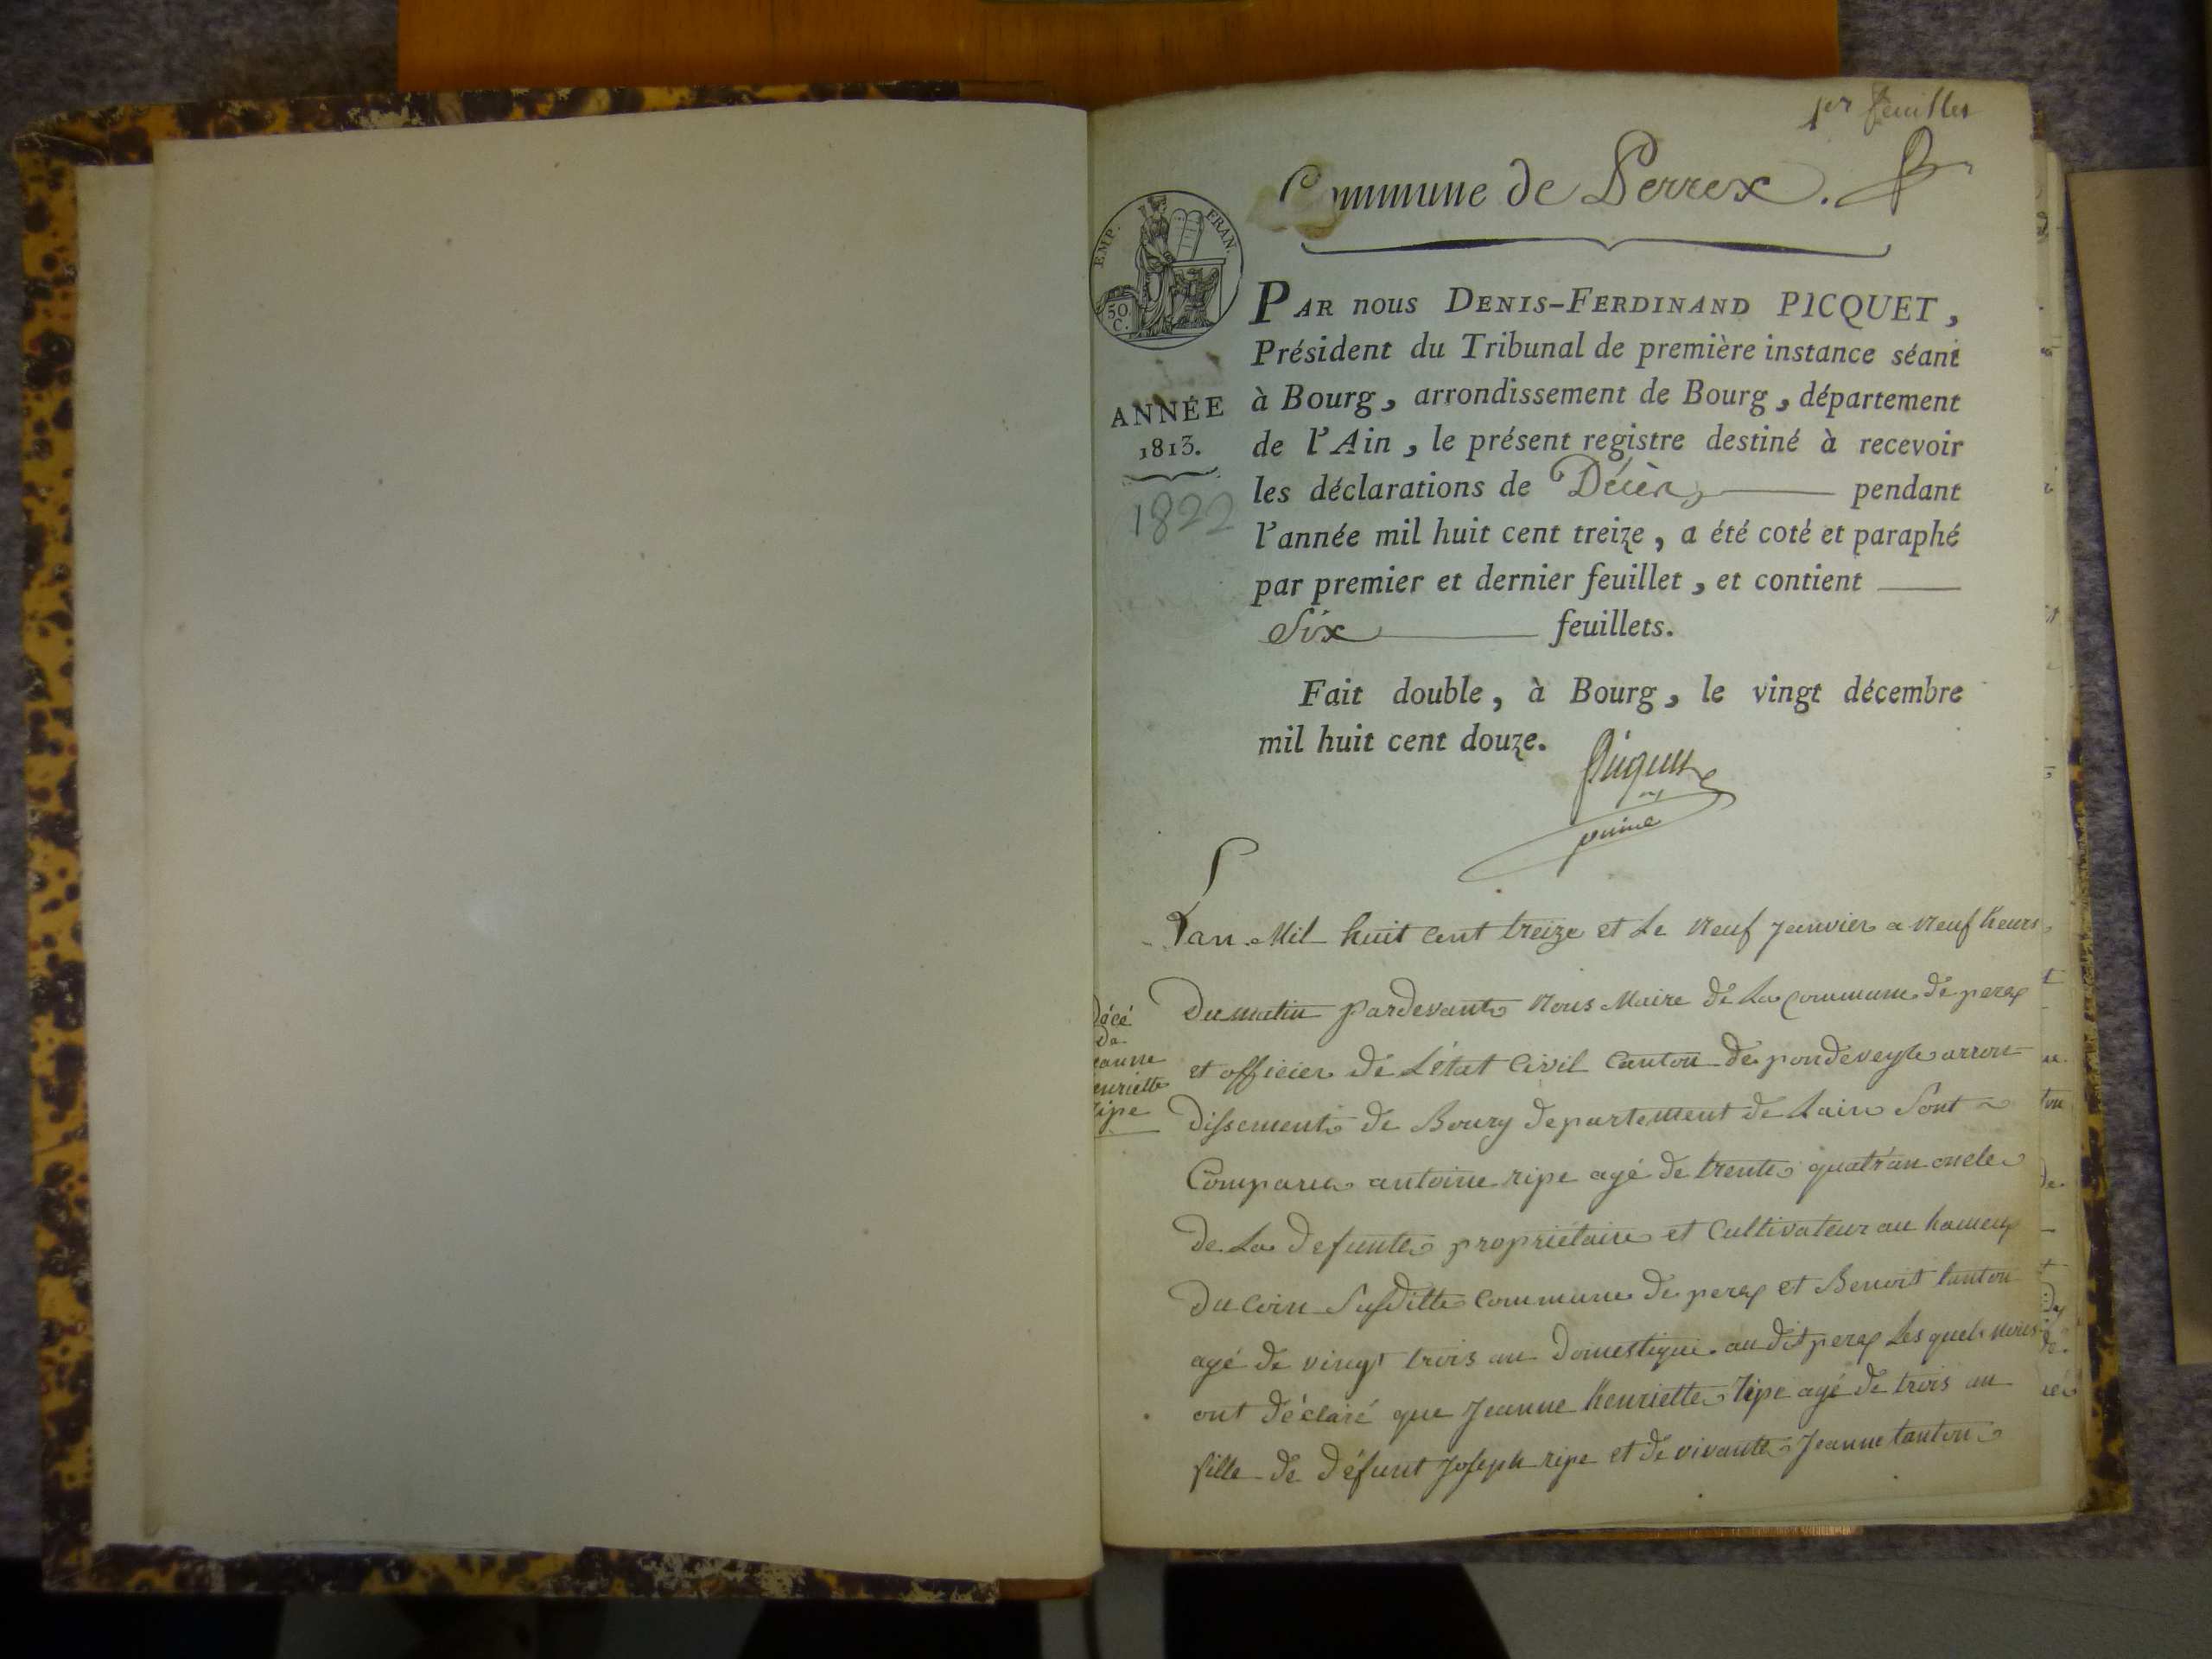 1er feuillet
Commune de Perrex.
EMP. FRAN.
50
C.
PAR nous DENIS-FERDINAND PICQUET,
Président du Tribunal de première instance séant
à Bourg, arrondissement de Bourg, département
de l'Ain, le présent registre destiné à recevoir
les déclarations de Décès pendant
l'année mil huit cent treize, a été coté et paraphé
par premier et dernier feuillet, et contient
Six feuillets.
Fait double, à Bourg, le vingt décembre
mil huit cent douze.
Picquet
ANNÉE
1813.
1822
Lan Mil huit cent treize et Le neuf Janvier a neuf heurs
Du matin pardevant nous Maire de La Commune de perex
et officier de L'état Civil Canton de pondeveyle arron
dissement de Bourg departement de Lain Sont
Comparus antoine ripe agé de trente quatr'an oncle
de La defunte propriétaire et Cultivateur au hameux
du Coin Susditte Commune de perex et Benoit tanton
agé de vingt trois an Domestique au dit perex Les quels nous
ont déclaré que Jeanne henriette ripe agé de trois an
fille de défunt Joseph ripe et de vivante Jeanne tanton
décé
de
eanne
enriette
ripe